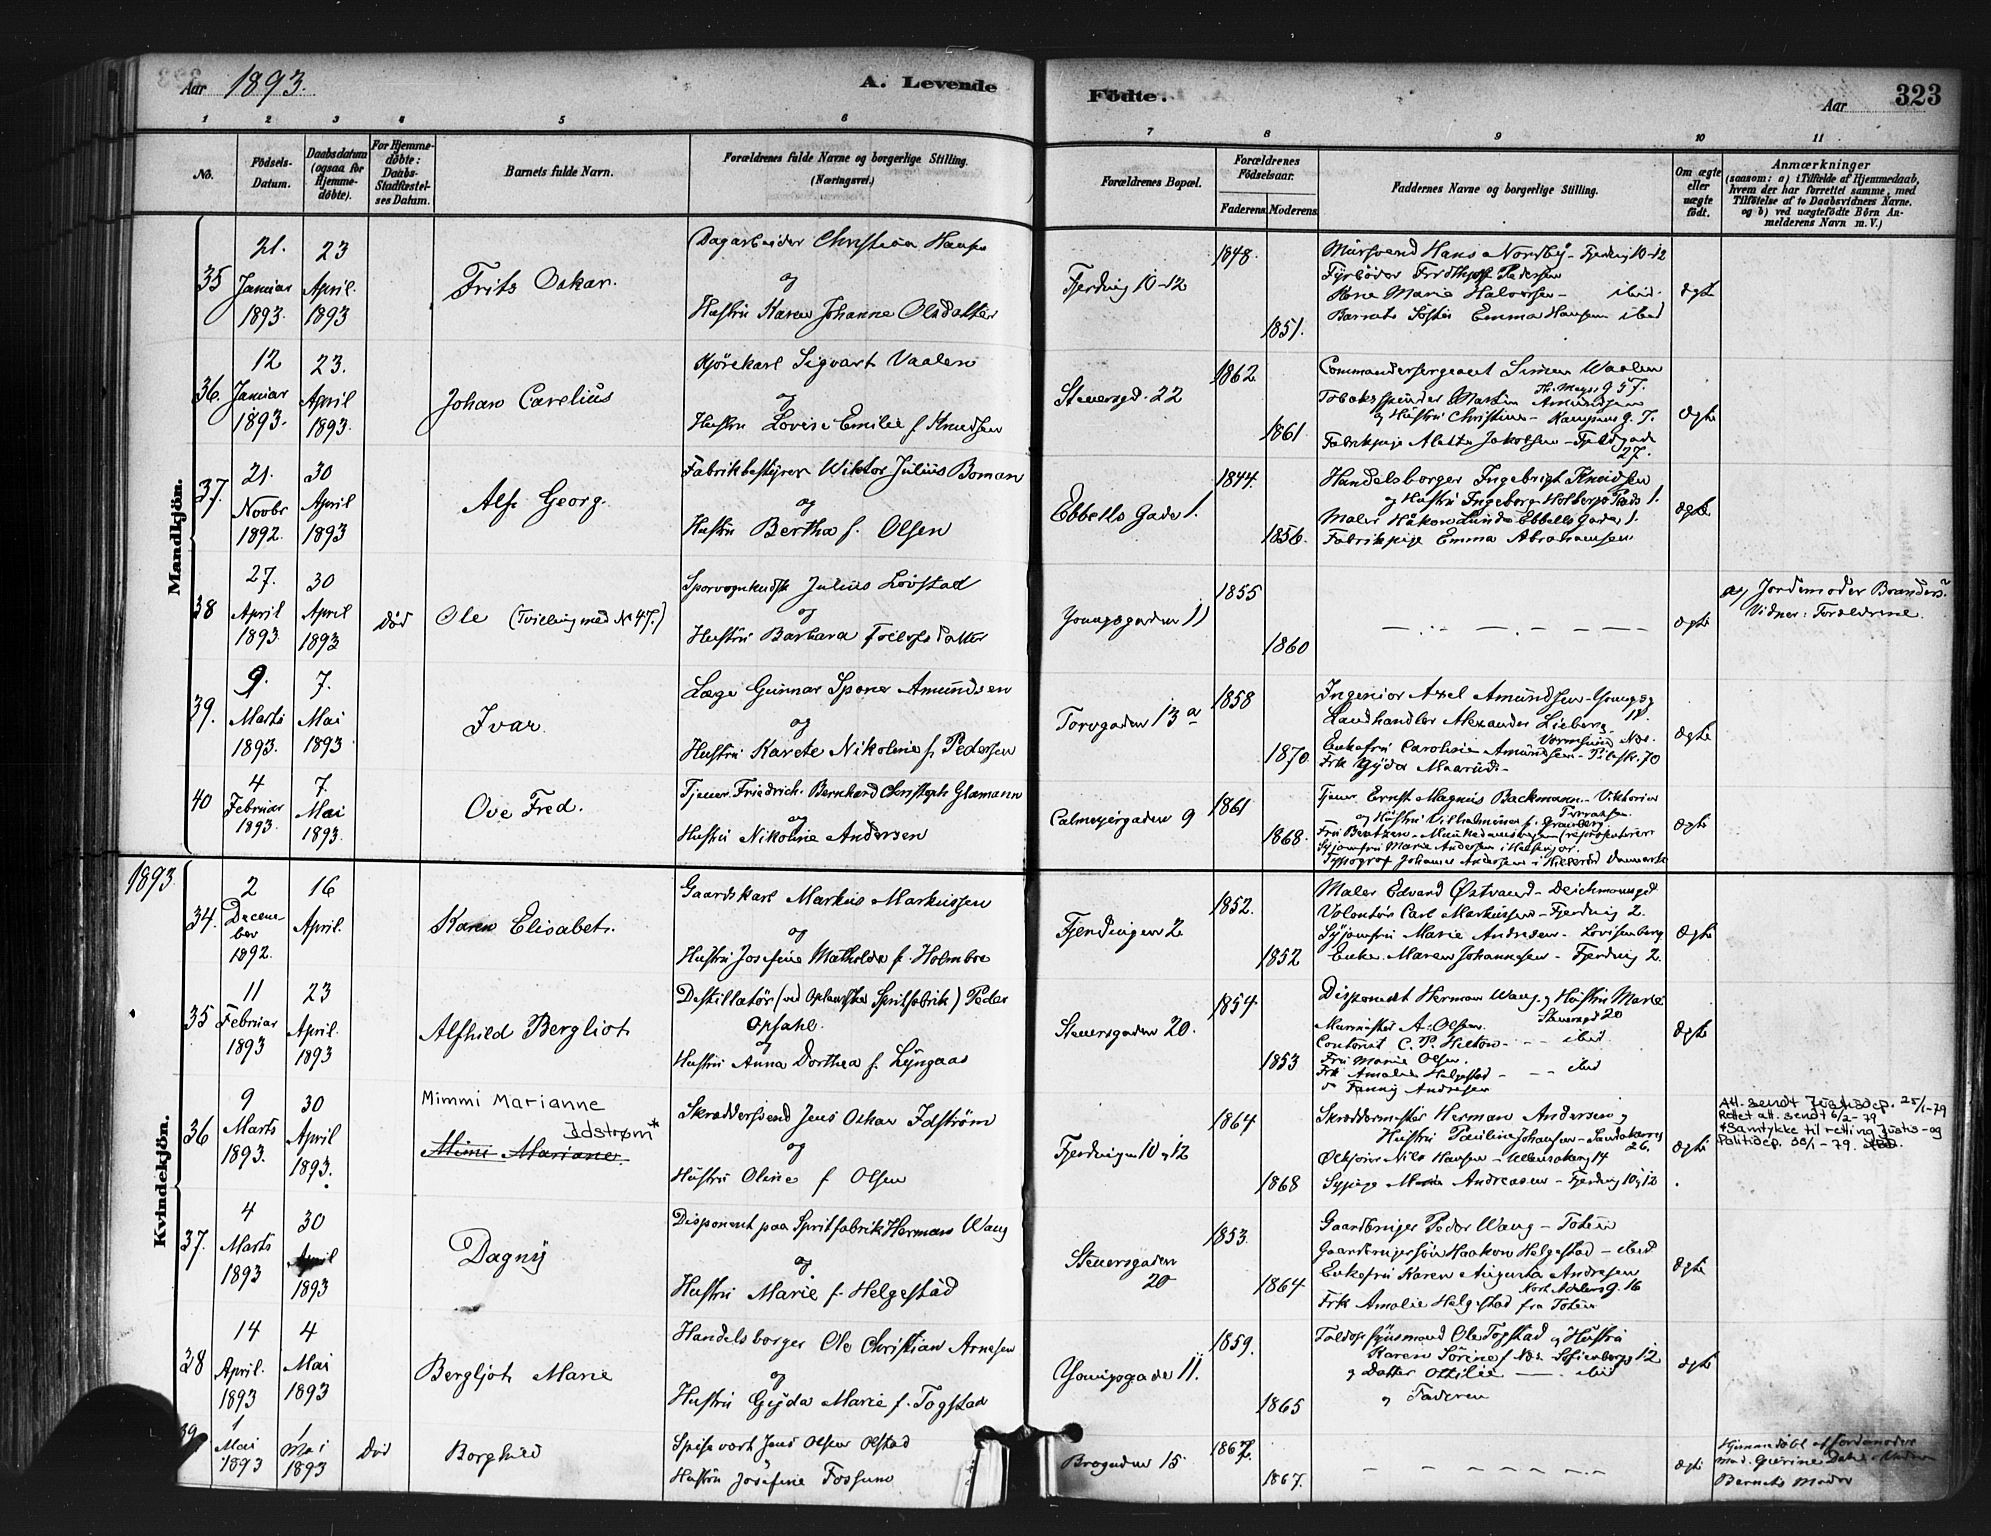 Aar 1893.
A. Levende
Födte.
Aar
323
1 2 3 4 5 6 7 8 9 10 11
No.
Födsels-Datum.
Daabsdatum (ogsaa for Hjemme-döbte).
For Hjemme-döbte: Daabs-Stadfæstel-ses Datum.
Barnets fulde Navn.
Forældrenes fulde Navne og borgerlige Stilling.
(Næringsvei.)
Forældrenes Bopæl.
Forældrenes Födselsaar.
Faderens.
Moderens.
Faddernes Navne og borgerlige Stilling.
Om ægte eller uægte födt.
Anmærkninger
(saasom: a) i Tilfælde af Hjemmedaab,
hvem der har forrettet samme, med
Tilföielse af to Daabsvidners Navne.
og b) ved uægtefödte Börn An-
melderens Navn m. V.)
Mandkjön.
35 21. Januar 1893. 23 April. 1893
Frits Oskar.
Dagarbeider Christian Hansen
og
Hustru Karen Johanne Olsdatter
Fjerding 10-12
1848.
1851.
Mursvend Hans Nordby - Fjerding 10-12
Fyrbøder Fredthjof Pedersen
Kone Marie Halvorsen - ibid.
Barnets Søster Emma Hansen ibid
ægte
36. 12 Januar 1893. 23. April 1893.
Johan Carelius
Kjørekarl Sigvart Vaalen
og
Hustru Lovise Emilie f. Knudsen
Steuersgd. 22
1862.
1861
Commandersergeant Simen Waalen
Th. Meyers g 57.
Tobaksspinder Martin Amundsen
og Hustru Christine - Hampens g. 7.
Fabrikpige Alette Jakobsen - Fjeldgade
27.
ægte
37. 21. Novbr 1892. 30 April 1893
Alf Georg.
Fabrikbestyrer Wiktor Julius Boman
og
Hustru Bertha f. Olsen
Ebbells Gade 1.
1844.
1856.
Handelsborger Ingebrigt Knudsen
og Hustru Ingeborg Holbergs Plads 1.
Maler Håkon Lund Ebbells Gade 1.
Fabrikpige Emma Abrahamsen
ægte
38 27. April 1893. 30 April 1893 Død
Ole (Tvilling med No 47.)
Sporvognkudsk Julius Løvstad
og
Hustru Barbara
Youngsgaden 11
1855
1860
ægte
a) Jordemoder Brandérs.
Vidner: Forældrene.
39. 9. Marts 1893. 7. Mai 1893
Ivar.
Læge Gunnar Sporer Amundsen
og
Hustru Karete Nikoline f. Pedersen
Torvgaden 13 a
1858
1870.
Ingeniør Axel Amundsen - Youngsg
11.
Landhandler Alexander Lieberg
Vormsund Nes.
Enkefru Caroline Amundsen - Pilestr. 70
Frk Gyda Maarud -
ægte
40 4 Februar 1893. 7. Mai 1893.
Ove Fred.
Tjener Friedrich Bernhard Christoph Glamann
og
Hustru Nikoline Andersen
Calmeyergaden 9
1861
1868.
Tjener Ernst Magnus Backmann - Viktoria
og Hustru Vilhelmine f. Granberg.
Syjomfru Marie Andersen i Helsingør.
Typograf Johannes Andersen i Hillerød Danmark
ægte
1893.
Kvindekjön.
34. 2 December 1892. 16 April.
Karen Elisabet.
Gaardskarl Markus Markussen
og
Hustru Josefine Mathilde f. Holmboe
Fjerdingen 2
1852.
1852
Maler Edvard Østvand - Deichmannsgd
Volontør Carl Markussen - Fjerding 2.
Syjomfru Marie Andresen - Lovisenberg
Enke Maren Johannesen - Fjerding 2.
ægte
35 11 Februar 1893 23 April. 1893
Alfhild Bergliot
Destillatør (ved Oplandske Spritfabrik) Peder
Opsahl.
og
Hustru Anna Dorthea f. Lyngaas
Steuersgaden 20.
1854.
1853
Disponent Herman Wang og Hustru Marie
Steuersgd 20
A. Olsen.
Contorist C. P. Hilton - - - ibid.
Fru Marie Olsen.
Frk Amalie Helgestad - - - ibid
Fanny Andresen
ægte
36 9 Marts 1893. 30 April 1893.
Mimmi Marianne
Idstrøm*
Mimi Mariane.
Skræddersvend Jens Oskar Idstrøm
og
Hustru Oline f Olsen
Fjerdingen 10 og 12
1864
1868
Skræddermester Herman Andersen og
Hustru Pauline Johansen - Sandakerv
26.
Nils Hansen - Ullensakerg 14
Sypige Marie Andreasen - Fjerding 10 og 12
ægte
Att. sendt Justisdep. 25/1-79
Rettet att. sendt 6/2-79
*Samtykke til retting Justis- og
Politidep.
37. 4 Marts 1893 30 April 1893
Dagny
Disponent paa Spritfabrik Herman Wang
og
Hustru Marie f. Helgestad
Steuersgaden
20
1853.
1864
Gaardbruger Peder Wang - Toten
Gaardbrugersøn Haakon Helgestad - ibid
Enkefru Karen Augusta Andresen
Kort Adelersg. 16
Frk Amalie Helgestad fra Toten
ægte
38 14 April. 1893 4 Mai 1893
Bergljot Marie
Handelsborger Ole Christian Arnesen
og
Hustru Gyda Marie f. Togstad
Youngsgade 11.
1859.
1865
Ole Togstad og Hustru
Karen Sørine f Nes. Sofienbergg 12
og Datter Ottilie - ibid
og Faderen
ægte
39 1 Mai 1893 1 Mai 1893 Død
Borghild
Spisevært Jens Olsen Olstad
Hustru Josefine Fossum
Brogaden 15
1867.
1867.
ægte
Hjemmedøbt af Jordemoder
Barnets Moder